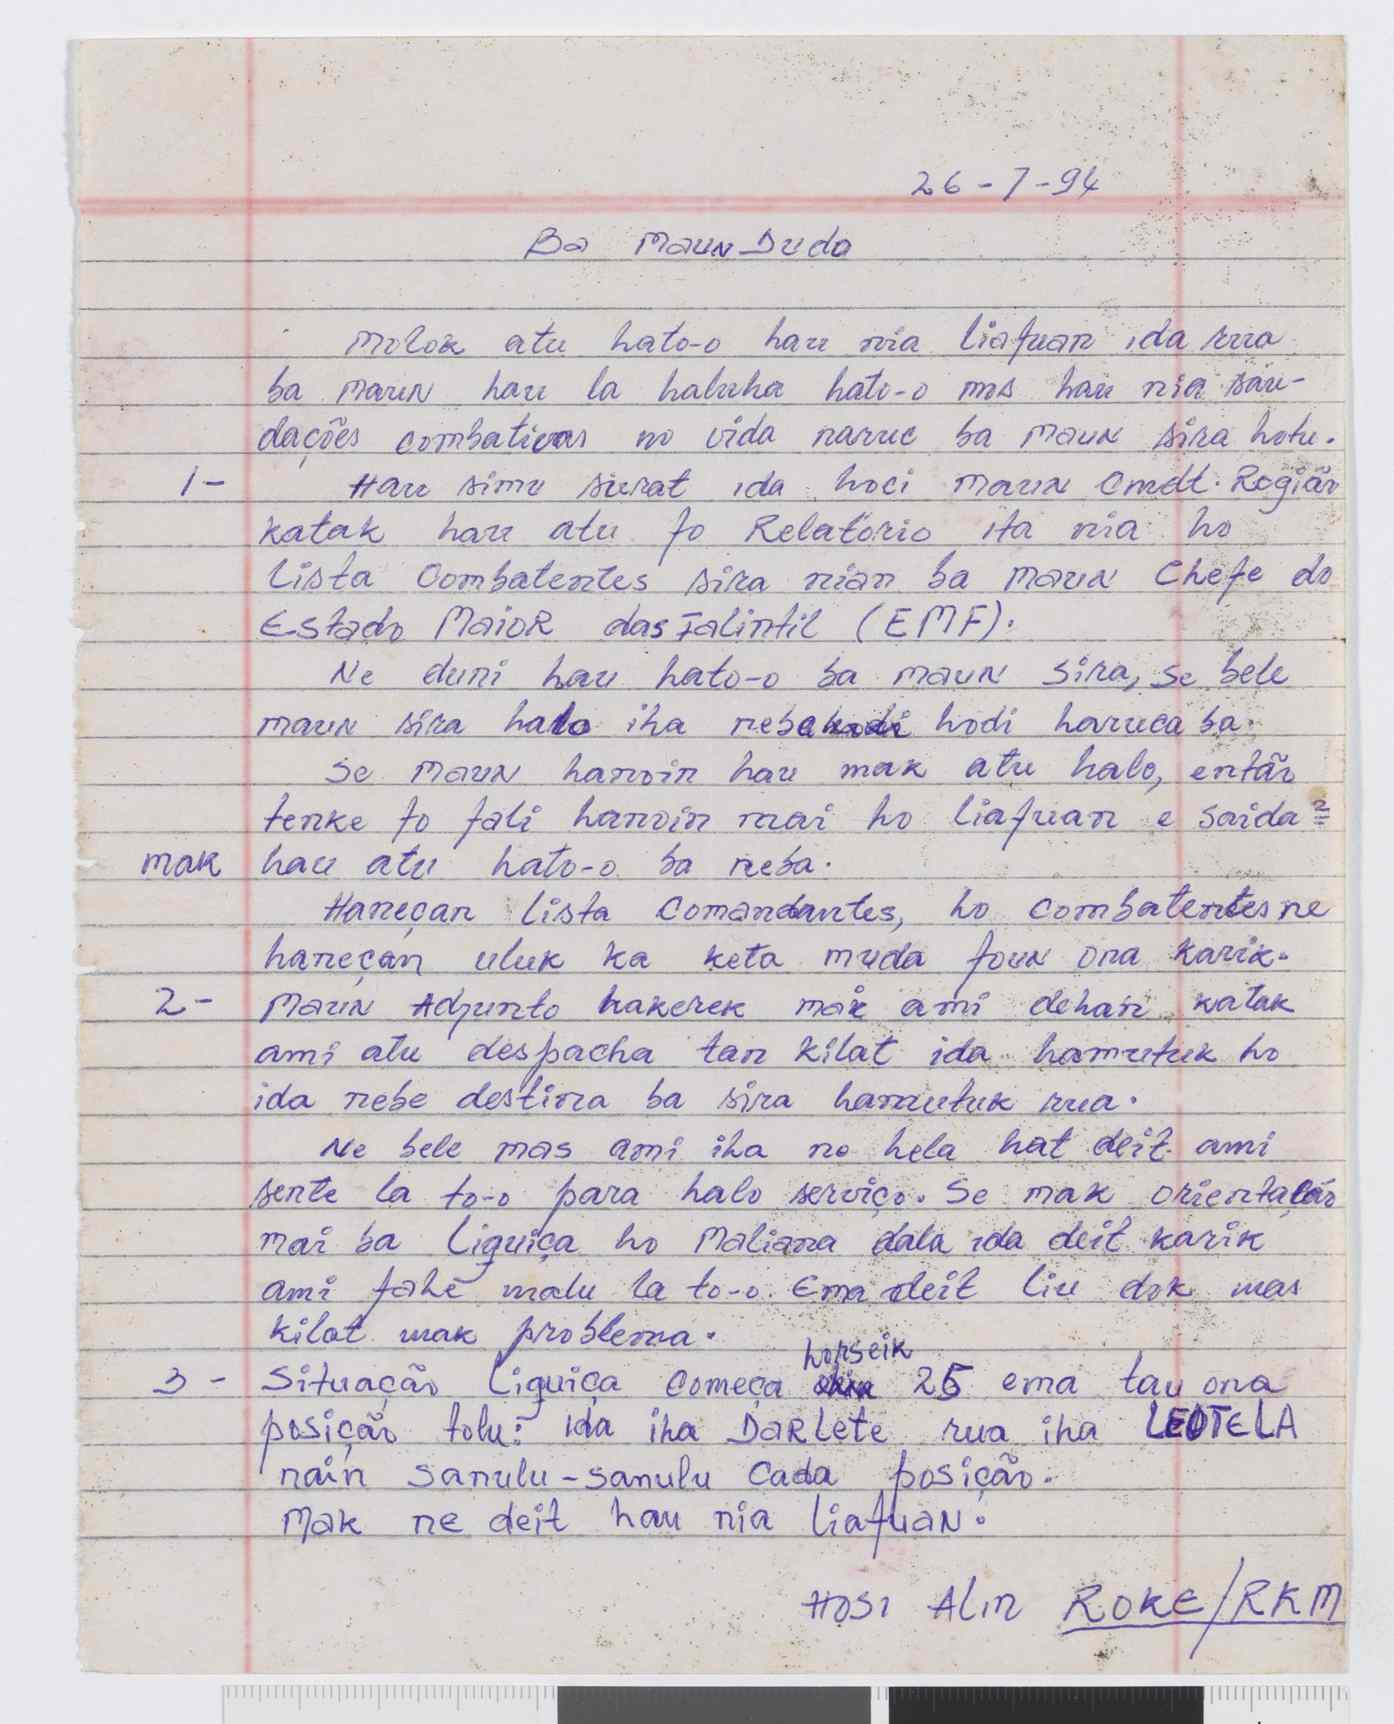 26-7-94
Ba Maun Duda
Molok atu hato-o hau nia liafuan ida rua
ba maun hau la haluha hato-o mos hau nia sau-
dações combativas no vida naruc ba maun sira hotu.
1- Hau simu surat ida hoci maun Cmdt. Rogião
katak hau atu fo Relatorio ita nia ho
lista Combatentes sira nian ba maun Chefe do
Estado Maior das Falintil (EMF).
Ne duni hau hato-o ba maun sira, se bele
maun sira halo iha neba hodi haruca ba.
Se maun hanoin hau mak atu halo, então
tenke fo fali hanoin mai ho liafuan e saida
mak hau atu hato-o ba neba.
Haneçan lista Comandantes, ho combatentes ne
haneçan uluk ka keta muda foun ona karik.
2- Maun Adjunto hakerek mak ami dehan katak
ami atu despacha tan kilat ida hamutuk ho
ida nebe destina ba sira hamutuk rua.
Ne bele mas ami iha no hela hat deit ami
sente la to-o para halo serviço. Se mak orientação
mai ba Liquiça ho Maliana dala ida deit karik
ami fahe malu la to-o. Ema deit liu dok mas
kilat mak problema.
horseik
3- Situação Liquiça começa 25 ema tau ona
posição tolu: ida iha Darlete rua iha LEOTELA
nain sanulu-sanulu cada posição.
Mak ne deit hau nia liafuan.
Hosi Alin ROKE/RKM